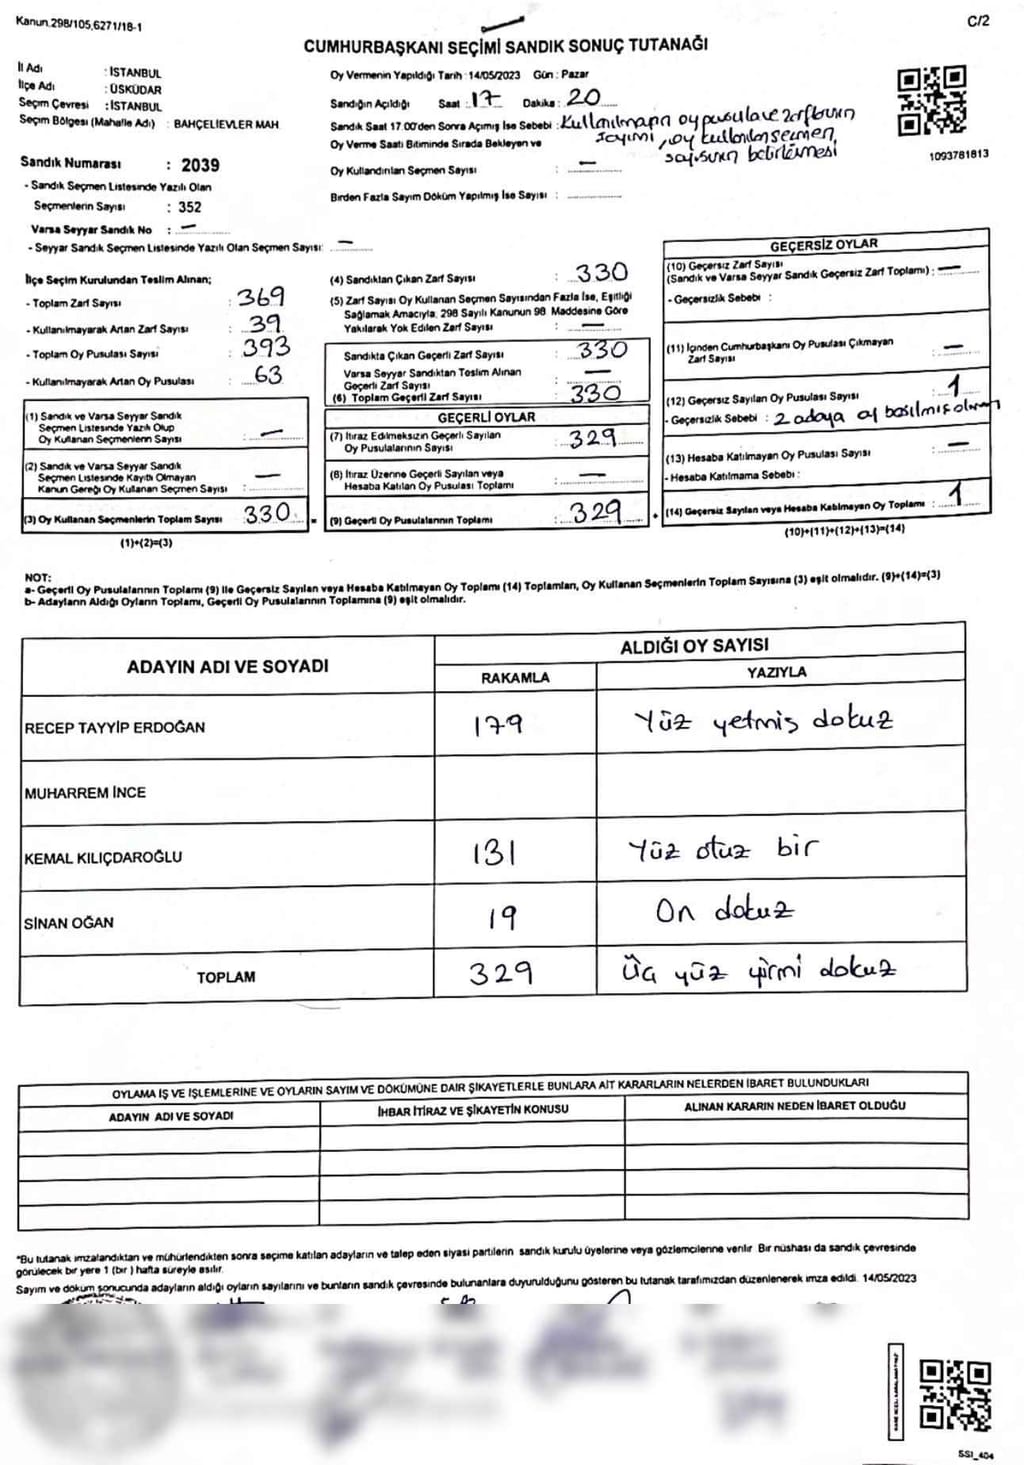 Kanun.298/105,6271/18-1
C/2
CUMHURBAŞKANI SEÇİMİ SANDIK SONUÇ TUTANAĞI
İl Adı : İSTANBUL
İlçe Adı : ÜSKÜDAR
Seçim Çevresi : İSTANBUL
Seçim Bölgesi (Mahalle Adı) : BAHÇELİEVLER MAH.
Oy Vermenin Yapıldığı Tarih : 14/05/2023 Gün : Pazar
Sandığın Açıldığı Saat : 17 Dakika : 20
Sandık Saat 17:00'den Sonra Açımış İse Sebebi : Kullanılmayan oy pusula ve zarfların
sayımı, oy kullanılan seçmen,
sayısının belirlenmesi
Oy Verme Saati Bitiminde Sırada Bekleyen ve
Oy Kullandırılan Seçmen Sayısı : —
Birden Fazla Sayım Döküm Yapılmış İse Sayısı :
1093781813
Sandık Numarası : 2039
- Sandık Seçmen Listesinde Yazılı Olan
Seçmenlerin Sayısı : 352
Varsa Seyyar Sandık No : —
- Seyyar Sandık Seçmen Listesinde Yazılı Olan Seçmen Sayısı: —
İlçe Seçim Kurulundan Teslim Alınan;
- Toplam Zarf Sayısı : 369
- Kullanılmayarak Artan Zarf Sayısı : 39
- Toplam Oy Pusulası Sayısı : 393
- Kullanılmayarak Artan Oy Pusulası : 63
(1) Sandık ve Varsa Seyyar Sandık
Seçmen Listesinde Yazılı Olup
Oy Kullanan Seçmenlerin Sayısı : —
(2) Sandık ve Varsa Seyyar Sandık
Seçmen Listesinde Kayıtlı Olmayan
Kanun Gereği Oy Kullanan Seçmen Sayısı : —
(3) Oy Kullanan Seçmenlerin Toplam Sayısı 330
(1)+(2)=(3)
(4) Sandıktan Çıkan Zarf Sayısı : 330
(5) Zarf Sayısı Oy Kullanan Seçmen Sayısından Fazla İse, Eşitliği
Sağlamak Amacıyla, 298 Sayılı Kanunun 98. Maddesine Göre
Yakılarak Yok Edilen Zarf Sayısı : —
Sandıkta Çıkan Geçerli Zarf Sayısı : 330
Varsa Seyyar Sandıktan Teslim Alınan
Geçerli Zarf Sayısı : —
(6) Toplam Geçerli Zarf Sayısı : 330
GEÇERLİ OYLAR
(7) İtiraz Edilmeksizin Geçerli Sayılan
Oy Pusulalarının Sayısı : 329
(8) İtiraz Üzerine Geçerli Sayılan veya
Hesaba Katılan Oy Pusulası Toplamı : —
= (9) Geçerli Oy Pusulalarının Toplamı : 329
GEÇERSİZ OYLAR
(10) Geçersiz Zarf Sayısı
(Sandık ve Varsa Seyyar Sandık Geçersiz Zarf Toplamı) : —
- Geçersizlik Sebebi :
(11) İçinden Cumhurbaşkanı Oy Pusulası Çıkmayan
Zarf Sayısı : —
(12) Geçersiz Sayılan Oy Pusulası Sayısı : 1
- Geçersizlik Sebebi : 2 adaya oy basılmış olması
(13) Hesaba Katılmayan Oy Pusulası Sayısı : —
- Hesaba Katılmama Sebebi :
+ (14) Geçersiz Sayılan veya Hesaba Katılmayan Oy Toplamı : 1
(10)+(11)+(12)+(13)=(14)
NOT:
a- Geçerli Oy Pusulalarının Toplamı (9) ile Geçersiz Sayılan veya Hesaba Katılmayan Oy Toplamı (14) Toplamları, Oy Kullanan Seçmenlerin Toplam Sayısına (3) eşit olmalıdır. (9)+(14)=(3)
b- Adayların Aldığı Oyların Toplamı, Geçerli Oy Pusulalarının Toplamına (9) eşit olmalıdır.
ADAYIN ADI VE SOYADI
ALDIĞI OY SAYISI
RAKAMLA YAZIYLA
RECEP TAYYİP ERDOĞAN 179 Yüz yetmiş dokuz
MUHARREM İNCE
KEMAL KILIÇDAROĞLU 131 Yüz otuz bir
SİNAN OĞAN 19 On dokuz
TOPLAM 329 Üç yüz yirmi dokuz
OYLAMA İŞ VE İŞLEMLERİNE VE OYLARIN SAYIM VE DÖKÜMÜNE DAİR ŞİKAYETLERLE BUNLARA AİT KARARLARIN NELERDEN İBARET BULUNDUKLARI
ADAYIN ADI VE SOYADI İHBAR İTİRAZ VE ŞİKAYETİN KONUSU ALINAN KARARIN NEDEN İBARET OLDUĞU
*Bu tutanak imzalandıktan ve mühürlendikten sonra seçime katılan adayların ve talep eden siyasi partilerin sandık kurulu üyelerine veya gözlemcilerine verilir. Bir nüshası da sandık çevresinde
görülecek bir yere 1 (bir) hafta süreyle asılır.
Sayım ve döküm sonucunda adayların aldığı oyların sayılarını ve bunların sandık çevresinde bulunanlara duyurulduğunu gösteren bu tutanak tarafımızdan düzenlenerek imza edildi. 14/05/2023
SSI_404